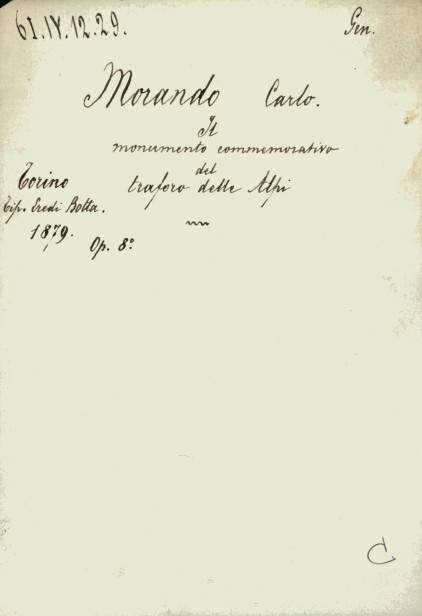 61.IV.12.29. Gen.
Morando Carlo.
Il
monumento commemorativo
del
traforo delle Alpi
Torino
Tip. Eredi Botta.
1879.
Op. 8º
C